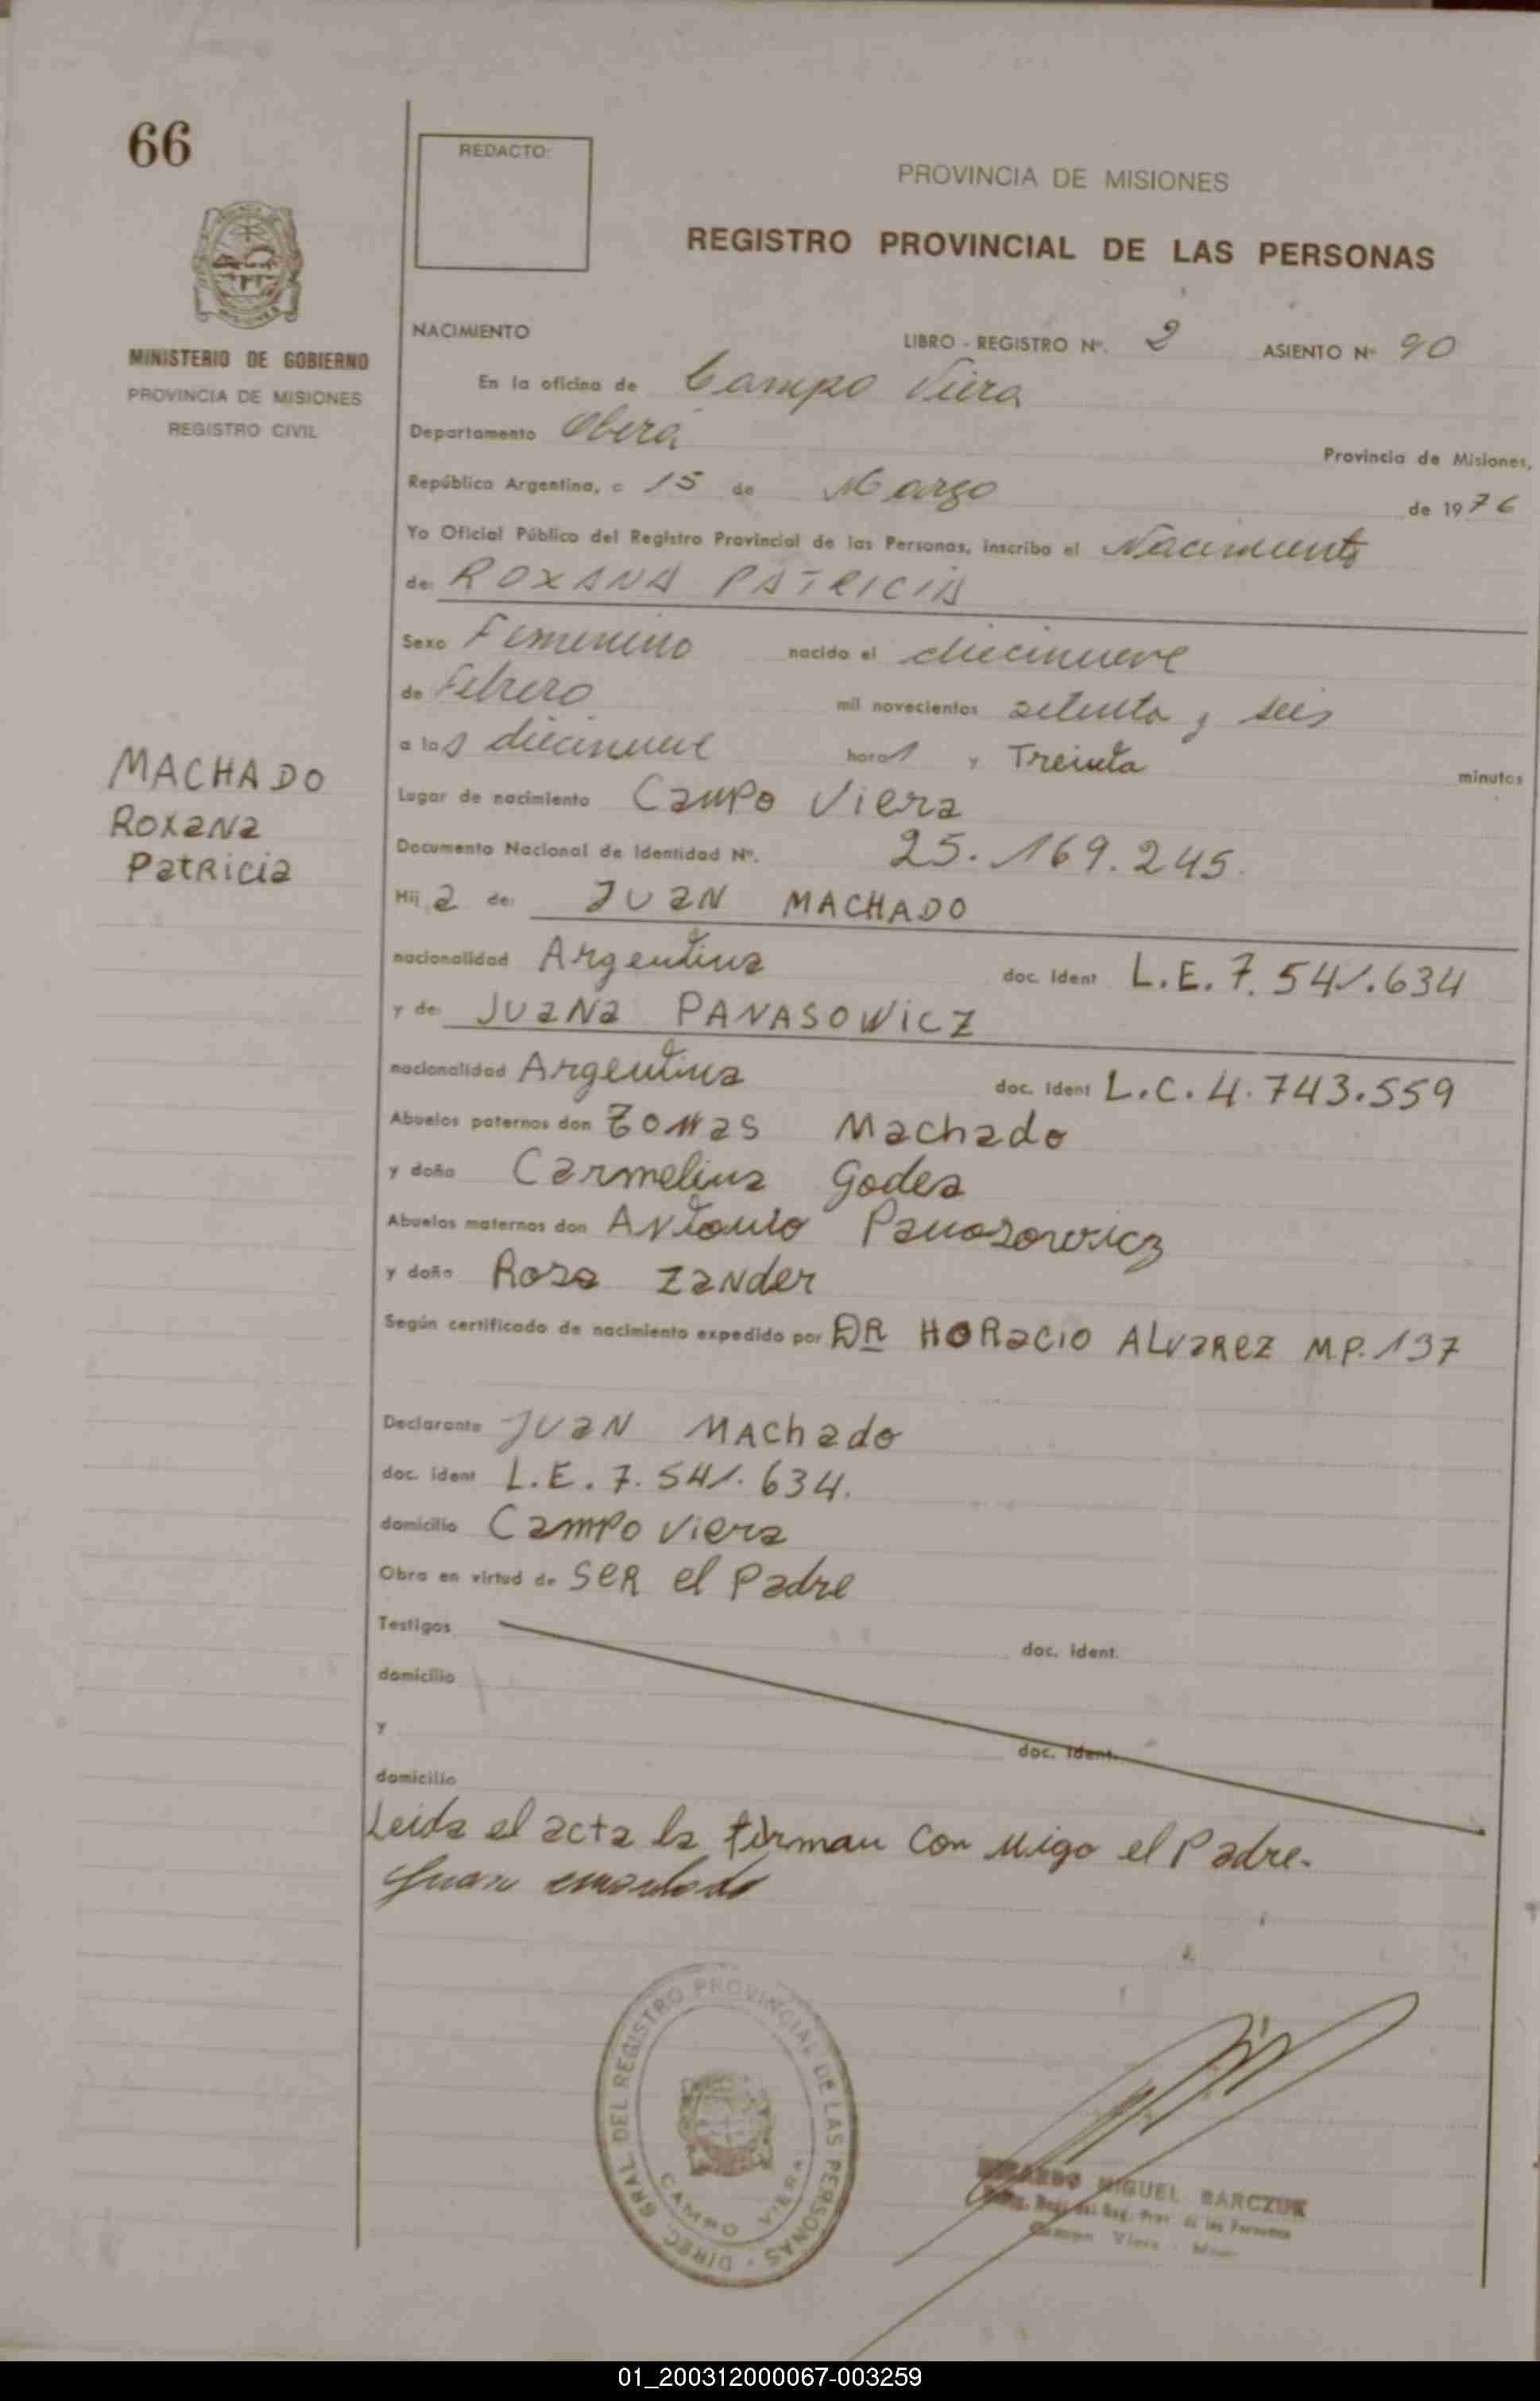 66
REDACTO:
PROVINCIA DE MISIONES
REGISTRO PROVINCIAL DE LAS PERSONAS
MINISTERIO DE GOBIERNO
PROVINCIA DE MISIONES
REGISTRO CIVIL
NACIMIENTO LIBRO - REGISTRO Nº. 2 ASIENTO Nº 90
En la oficina de Campo Viera
Departamento Oberá Provincia de Misiones,
República Argentina, a 15 de Marzo de 1976
Yo Oficial Público del Registro Provincial de las Personas, inscribo el Nacimiento
de: ROXANA PATRICIA
Sexo Femenino nacida el diecinueve
de Febrero mil novecientos setenta y seis
a las diecinueve horas y Treinta minutos
MACHADO
Roxana
Patricia
Lugar de nacimiento Campo Viera
Documento Nacional de Identidad Nº. 25.169.245.
Hija de: Juan MACHADO
nacionalidad Argentina doc. Ident L.E. 7.541.634
y de: Juana PANASOWicz
nacionalidad Argentina doc. Ident L.C. 4.743.559
Abuelos paternos don Tomas Machado
y doña Carmelina Godea
Abuelos maternos don Antonio Panasowicz
y doña Rosa Zander
Según certificado de nacimiento expedido por DR HORacio ALvaRez M.P. 137
Declarante Juan Machado
doc. ident L.E. 7.541.634.
domicilio Campo Viera
Obra en virtud de SER el Padre
Testigos doc. ident.
domicilio
y doc. ident.
domicilio
Leida el acta la firman con migo el Padre.
Juan Machado
DIREC. GRAL. DEL REGISTRO PROVINCIAL DE LAS PERSONAS
CAMPO VIERA
MIGUEL BARCZUK
Reg. Prov. de las Personas
Campo Viera
01_200312000067-003259